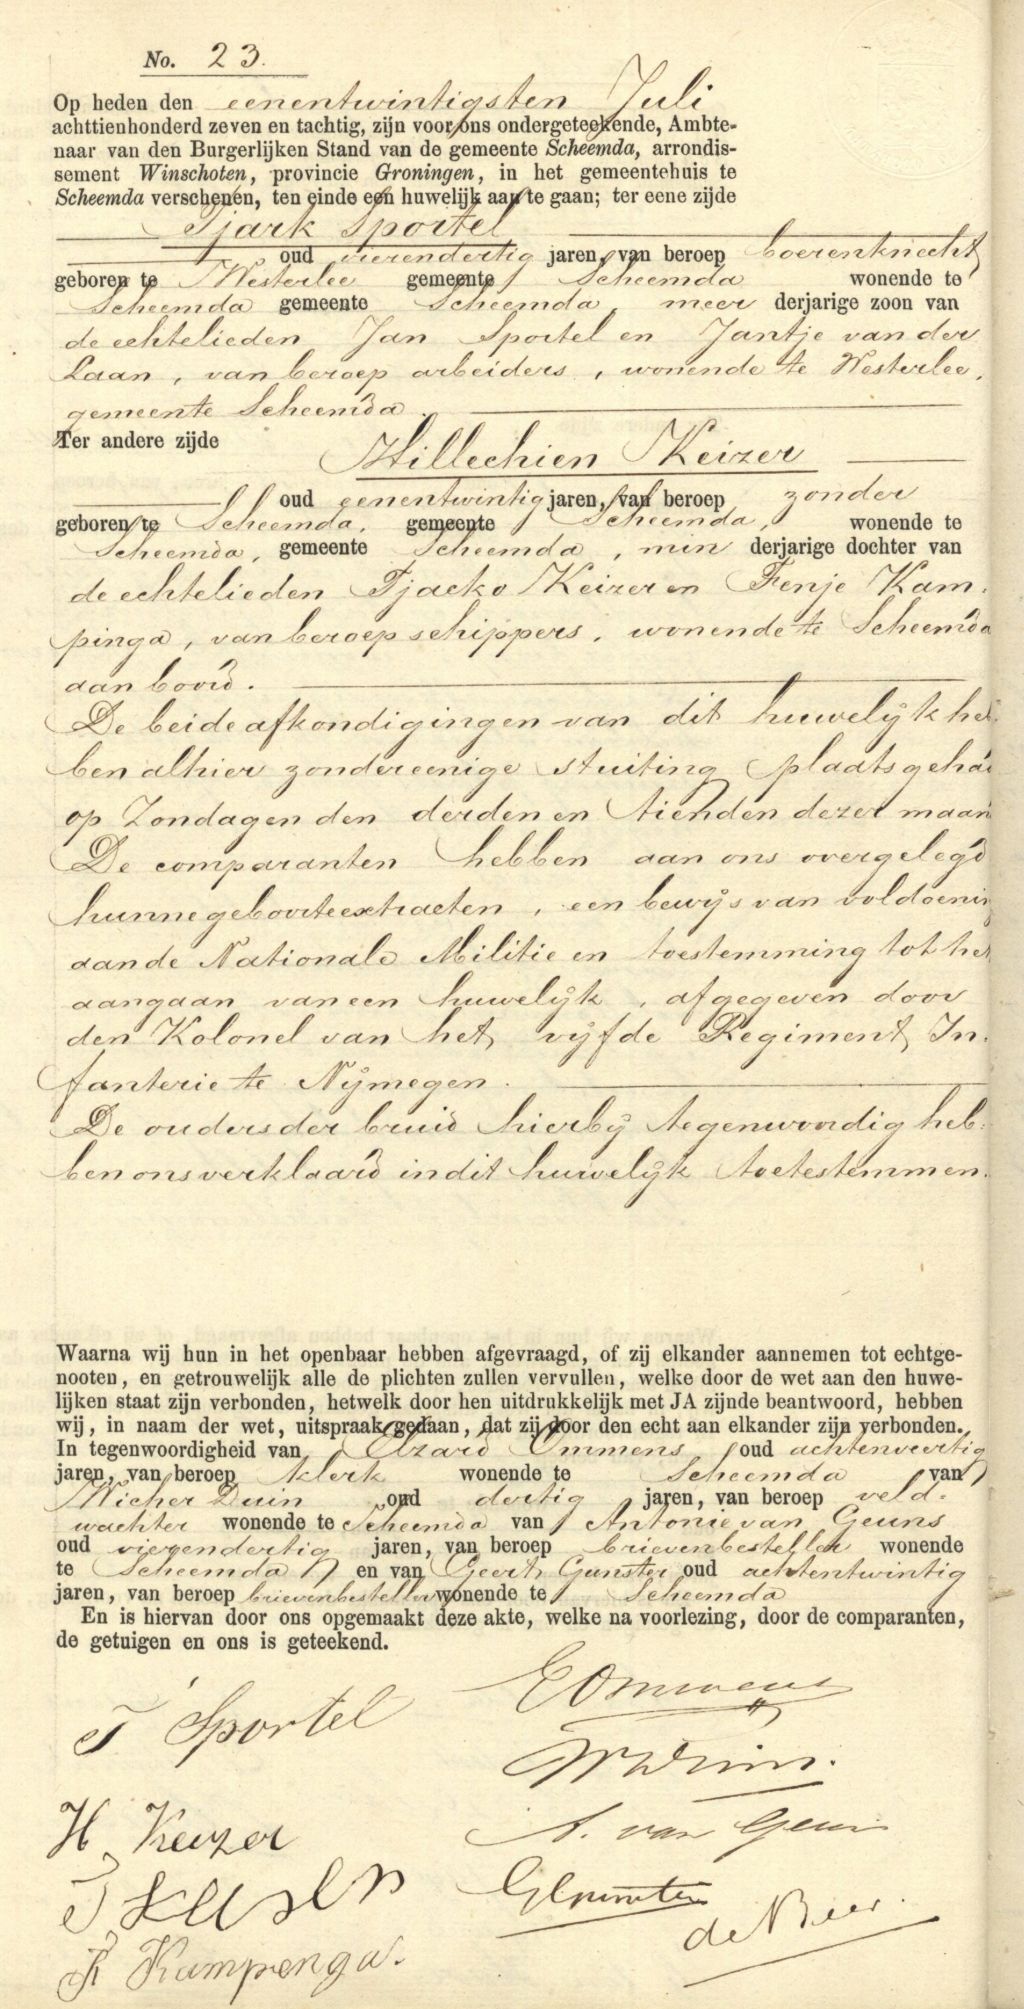 No. 23.
Op heden den eenentwintigsten Juli
achttienhonderd zeven en tachtig, zijn voor ons ondergeteekende, Ambte-
naar van den Burgerlijken Stand van de gemeente Scheemda, arrondis-
sement Winschoten, provincie Groningen, in het gemeentehuis te
Scheemda verschenen, ten einde een huwelijk aan te gaan; ter eene zijde
Tjark Sportel
oud vierendertig jaren, van beroep boerenknecht
geboren te Westerlee gemeente Scheemda wonende te
Scheemda gemeente Scheemda, meer derjarige zoon van
de echtelieden Jan Sportel en Jantje van der
Laan, van beroep arbeiders, wonende te Westerlee,
gemeente Scheemda.
Ter andere zijde
Hillechien Keizer
oud eenentwintig jaren, van beroep zonder
geboren te Scheemda, gemeente Scheemda, wonende te
Scheemda, gemeente Scheemda, min derjarige dochter van
de echtelieden Tjacko Keizer en Fenje Kam-
pinga, van beroep schippers, wonende te Scheemda
aan boord.
De beide afkondigingen van dit huwelijk heb-
ben alhier zonder eenige stuiting plaats gehad
op Zondagen den derden en tienden dezer maand
De comparanten hebben aan ons overgelegd
hunne geboorteextracten, een bewijs van voldoening
aan de Nationale Militie en toestemming tot het
aangaan van een huwelijk, afgegeven door
den Kolonel van het vijfde Regiment In-
fanterie te Nijmegen.
De ouders der bruid hierbij tegenwoordig heb-
ben ons verklaard in dit huwelijk toetestemmen.
Waarna wij hun in het openbaar hebben afgevraagd, of zij elkander aannemen tot echtge-
nooten, en getrouwelijk alle de plichten zullen vervullen, welke door de wet aan den huwe-
lijken staat zijn verbonden, hetwelk door hen uitdrukkelijk met JA zijnde beantwoord, hebben
wij, in naam der wet, uitspraak gedaan, dat zij door den echt aan elkander zijn verbonden.
In tegenwoordigheid van Elzard Ommens, oud achtenveertig
jaren, van beroep klerk wonende te Scheemda van
Wicher Duin oud dertig jaren, van beroep veld-
wachter wonende te Scheemda van Antonie van Geuns
oud vierendertig jaren, van beroep brievenbesteller wonende
te Scheemda en van Geert Gunster oud achtentwintig
jaren, van beroep brievenbesteller wonende te Scheemda
En is hiervan door ons opgemaakt deze akte, welke na voorlezing, door de comparanten,
de getuigen en ons is geteekend.
T Sportel
E Ommens
W Duin.
H Keizer
A. van Geuns
T Keizer
G Gunster
F Kampenga.
de Beer.